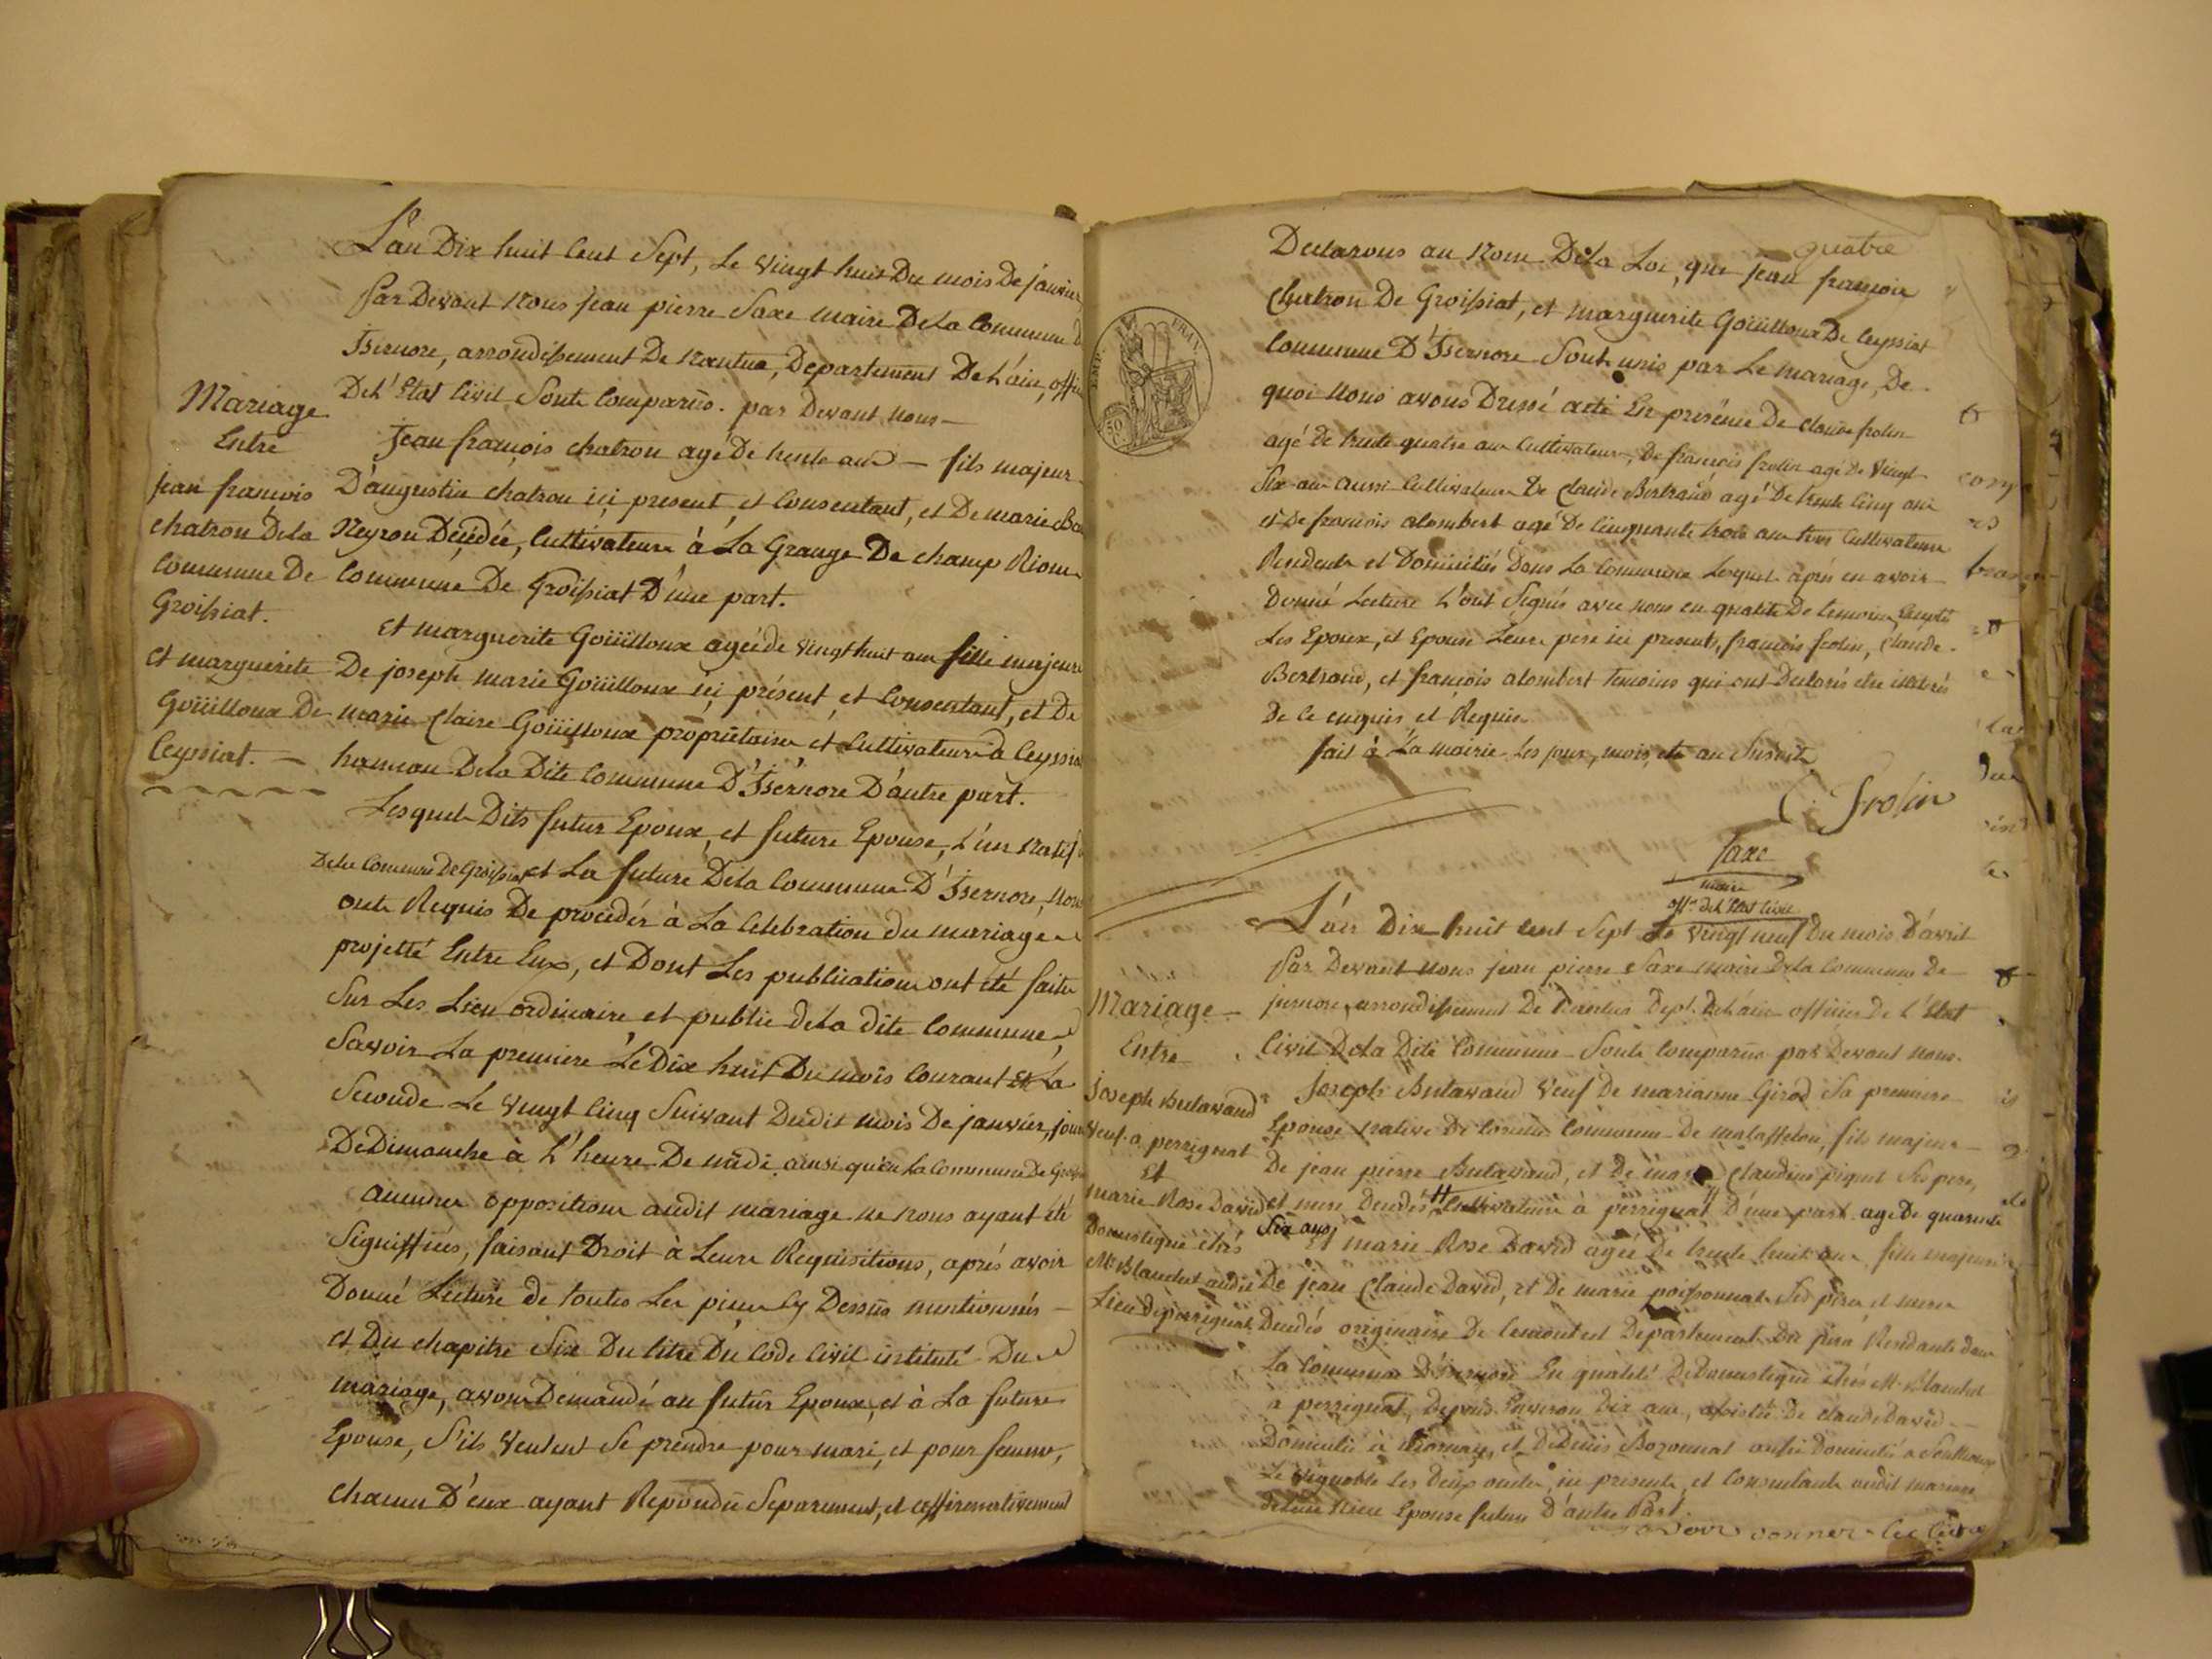 L'an Dix huit Cent Sept, Le vingt huit Du mois De janvier,
Par Devant Nous jean pierre Saxe maire De La Commune D
Isernore, arrondissement De Nantua, Departement De L'ain, offi
De L'Etat Civil Sonts Comparus. par Devant nous —
Jean françois chatron agé De trente ans — fils majeur
D'augustin chatron ici present, et Consentant, et De marie
Neyron Décédée, Cultivateurs à La Grange De champ Riom
Commune De Groissiat D'une part.
et marguerite Goüilloux agée de vingt huit ans fille majeure
De joseph marie Goüilloux ici présent, et Consentant, et De
marie Claire Goüilloux propriétaire et Cultivateurs à Ceyssia
hameau De La Dite Commune D'Isernore D'autre part.
Mariage
Entre
jean françois
chatron De La
Commune De
Groissiat.
et marguerite
Goüilloux De
Ceyssiat. —
Lesquels Dits futur Epoux, et future Epouse, L'un Natif
De La Commune De Groissiat et La future De La Commune D'Isernore, Nous
onts Requis De procéder à La Celebration du mariage
projetté Entre Eux, et Dont Les publications ont été faites
Sur Les Lieu ordinaire et public De La dite Commune,
Savoir La premiere Le Dix huit Du mois Courant Et La
Seconde Le vingt Cinq Suivant Dudit mois De janvier, jour
De Dimanche à L'heure De midi ainsi qu'en La Commune De Groiss
aucunes oppositions audit mariage ne nous ayant été
Signiffiés, faisant Droit à Leurs Requisitions, aprés avoir
Donné Lecture de toutes Les pieces Cy Dessus mentionnés —
et Du chapitre Six Du titre Du Code Civil intitulé Du
mariage, avons Demandé au futur Epoux, et à La future
Epouse, S'ils veulent Se prendre pour mari, et pour femme,
chacun D'eux ayant Repondu Separement, et affirmativement
quatre
Declarons au Nom De La Loi, que jean françois
chatron De Groissiat, et marguerite Goüilloux De Ceyssiat
Commune D'Isernore Sont unis par Le mariage, De
quoi Nous avons Dressé acte En presence De claude frolin
agé de trente quatre ans Cultivateur, De françois frolin agé De vingt
Six ans aussi Cultivateur De Claude Bertrand agé De trente Cinq ans
et De françois alombert agé De Cinquante trois ans tous Cultivateurs
Residents et Domiciliés Dans La Commune Lesquels aprés en avoir
Donné Lecture L'ont Signés avec nous en qualité De temoins Excepté
Les Epoux, et Epouse Leurs pere ici presents, françois frolin, Claude
Bertrand, et françois alombert temoins qui ont Declarés etre illitérés
De Ce enquis et Requis
fait à La mairie Les jour, mois, et an Susdits
EMP. FRAN.
50
C. frolin
Saxe
maire
offr. de L'Etat Civil
L'an Dix huit cent Sept Le Vingt neuf Du mois D'avril
Par Devant nous jean pierre Saxe maire De La Commune De
jsernore, arrondissement De Nantua Dept. De L'ain officier De L'Etat
Civil De La Dite Commune Sonts Comparus par Devant nous
Joseph Butavand Veuf De marianne Girod Sa premiere
Epouse native De Commune De matafelon, fils majeur —
De jean pierre Butavand, et De marie Claudine piquet Ses pere,
et mere Decedés, Cultivateurs à perrignat D'une part. agé De quarente
Six ans
Et marie Rose David agée De trente huit ans fille majeure
De jean Claude David, et De marie poissonnat Ses pere et mere
Decedés originaire De Departement Du jura Residante dans
La Commune D'isernore En qualité De Domestique chés Mr. Blanchet
à perrignat, Depuis Environ Dix ans, assistée De claude David
Domicilié à , et De Denis Bozonnat aussi Domicilié à
Le vignoble Les Deux oncles, ici presents, et Consentants audit mariage
de Leur Niece Epouse future D'autre Part.
Mariage
Entre
joseph Butavand
Veuf à perrignat
Et
marie Rose David
Domestique chés
Mr. Blanchet audit
Lieu De perrignat